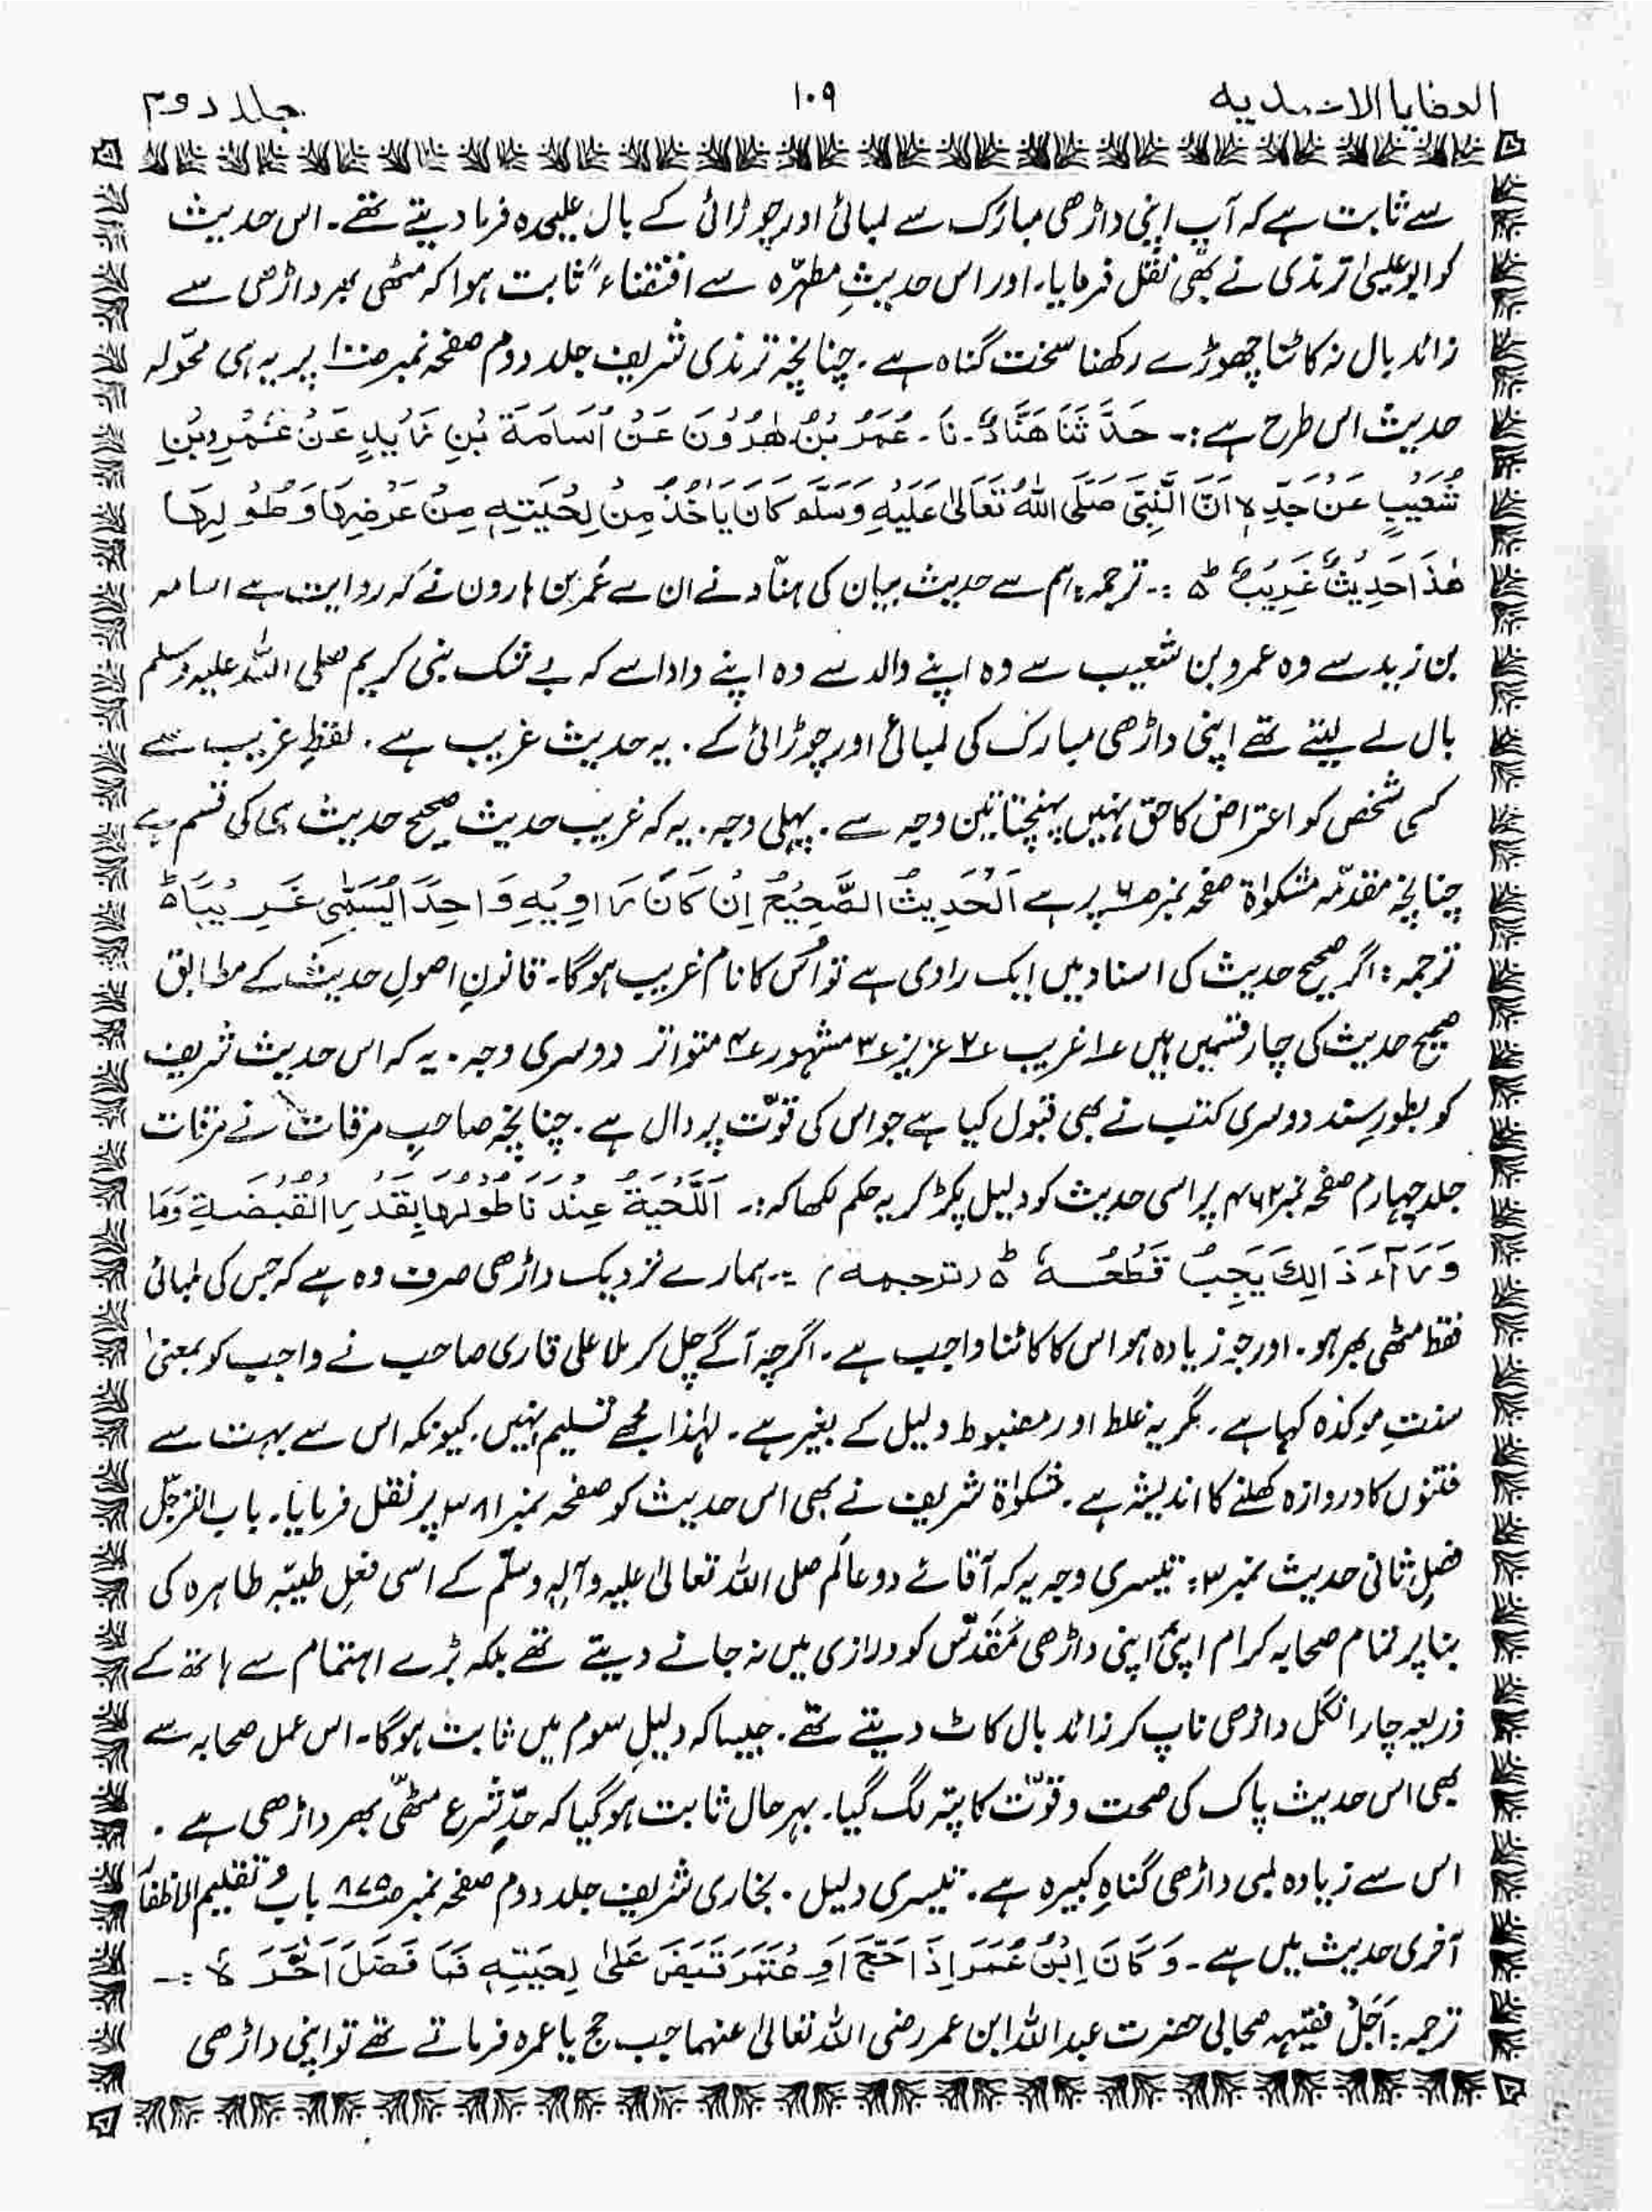 العطایا الاحمدیه ۱۰۹ جلد دوم
سے ثابت ہے کہ آپ اپنی داڑھی مبارک سے لمبائی اور چوڑائی کے بال علیحدہ فرما دیتے تھے۔ اس حدیث
کو ابو عیسیٰ ترمذی نے بھی نقل فرمایا۔ اور اس حدیثِ مطہرّہ سے اقتضاءً ثابت ہوا کہ مٹھی بھر داڑھی سے
زائد بال نہ کاٹنا چھوڑے رکھنا سخت گناہ ہے۔ چنانچہ ترمذی شریف جلد دوم صفحہ نمبر صنا پر یہ ہی محوّلہ
حدیث اس طرح ہے :۔ حَدَّثَنَا هَنَّادٌ۔ نَا۔ عُمَرُ بْنُ هٰرُوْنَ عَنْ اُسَامَةَ بْنِ زَیْدٍ عَنْ عَمْرِو بْنِ
شُعَیْبٍ عَنْ جَدِّهٖ اَنَّ النَّبِیَّ صَلَّی اللّٰهُ تَعَالیٰ عَلَیْهِ وَسَلَّمَ کَانَ یَاْخُذُ مِنْ لِحْیَتِهٖ مِنْ عَرْضِهَا وَطُوْلِهَا
هٰذَا حَدِیْثٌ غَرِیْبٌ ط ۵ :۔ ترجمہ: ہم سے حدیث بیان کی ہنّاد نے ان سے عُمر بن ہارون نے کہ روایت ہے اسامہ
بن زید سے وہ عمرو بن شعیب سے وہ اپنے والد سے وہ اپنے دادا سے کہ بے شک نبی کریم صلی اللہ علیہ وسلم
بال لے لیتے تھے اپنی داڑھی مبارک کی لمبائی اور چوڑائی کے۔ یہ حدیث غریب ہے۔ لفظِ غریب سے
کسی شخص کو اعتراض کا حق نہیں پہنچتا تین وجہ سے۔ پہلی وجہ۔ یہ کہ غریب حدیث صحیح حدیث ہی کی قسم ہے
چنانچہ مقدّمہ مشکوٰۃ صفحہ نمبر ص۶ پر ہے اَلْحَدِیْثُ الصَّحِیْحُ اِنْ کَانَ رَاوِیْهِ وَاحِدًا یُسَمّٰی غَرِیْبًا ط ۵
ترجمہ: اگر صحیح حدیث کی اسناد میں ایک راوی ہے تو اُس کا نام غریب ہوگا۔ قانونِ اصولِ حدیث کے مطابق
صحیح حدیث کی چار قسمیں ہیں ۱؎ غریب ۲؎ عزیز ۳؎ مشہور ۴؎ متواتر دوسری وجہ۔ یہ کہ اس حدیث شریف
کو بطورِ سند دوسری کتب نے بھی قبول کیا ہے جو اس کی قوّت پر دال ہے۔ چنانچہ صاحبِ مرقات نے مرقات
جلد چہارم صفحہ نمبر ۴۶۲ پر اسی حدیث کو دلیل پکڑ کر یہ حکم لکھا کہ :۔ اَللِّحْیَةُ عِنْدَنَا طُوْلُهَا بِقَدْرِ الْقُبْضَةِ وَمَا
وَرَآءَ ذَالِكَ یَجِبُ قَطْعُهٗ ط ۵ (ترجمه) :۔ ہمارے نزدیک داڑھی صرف وہ ہے کہ جس کی لمبائی
فقط مٹھی بھر ہو۔ اور جو زیادہ ہو اس کا کاٹنا واجب ہے۔ اگرچہ آگے چل کر ملا علی قاری صاحب نے واجب کو بمعنیٰ
سنتِ موکذہ کہا ہے۔ مگر یہ غلط اور مضبوط دلیل کے بغیر ہے۔ لہٰذا مجھے تسلیم نہیں۔ کیونکہ اس سے بہت سے
فتنوں کا دروازہ کھلنے کا اندیشہ ہے۔ مشکوٰۃ شریف نے بھی اس حدیث کو صفحہ نمبر ۳۸۱ پر نقل فرمایا۔ باب الترجّل
فصلِ ثانی حدیث نمبر ۳: تیسری وجہ یہ کہ آقائے دو عالَم صلی اللہ تعالیٰ علیہ وآلہٖ وسلّم کے اسی فعلِ طیبّہ طاہرہ کی
بنا پر تمام صحابہ کرام اپنی اپنی داڑھی مُقدّس کو درازی میں نہ جانے دیتے تھے بلکہ بڑے اہتمام سے ہاتھ کے
ذریعہ چار انگل داڑھی ناپ کر زائد بال کاٹ دیتے تھے۔ جیسا کہ دلیلِ سوم میں ثابت ہوگا۔ اس عمل صحابہ سے
بھی اس حدیث پاک کی صحت و قوّت کا پتہ لگ گیا۔ بہر حال ثابت ہو گیا کہ حدِّ شرع مٹھّی بھر داڑھی ہے۔
اس سے زیادہ لمبی داڑھی گناہِ کبیرہ ہے۔ تیسری دلیل۔ بخاری شریف جلد دوم صفحہ نمبر ص۸۷۵ بابُ تقلیم الاظفار
آخری حدیث میں ہے۔ وَکَانَ اِبْنُ عُمَرَ اِذَا حَجَّ اَوِ عْتَمَرَ قَبَضَ عَلیٰ لِحْیَتِهٖ فَمَا فَضَلَ اَخَذَهٗ :۔
ترجمہ: اَجَلْ فقیہہ صحابی حضرت عبداللہ ابن عمر رضی اللہ تعالیٰ عنہما جب حج یا عمرہ فرماتے تھے تو اپنی داڑھی